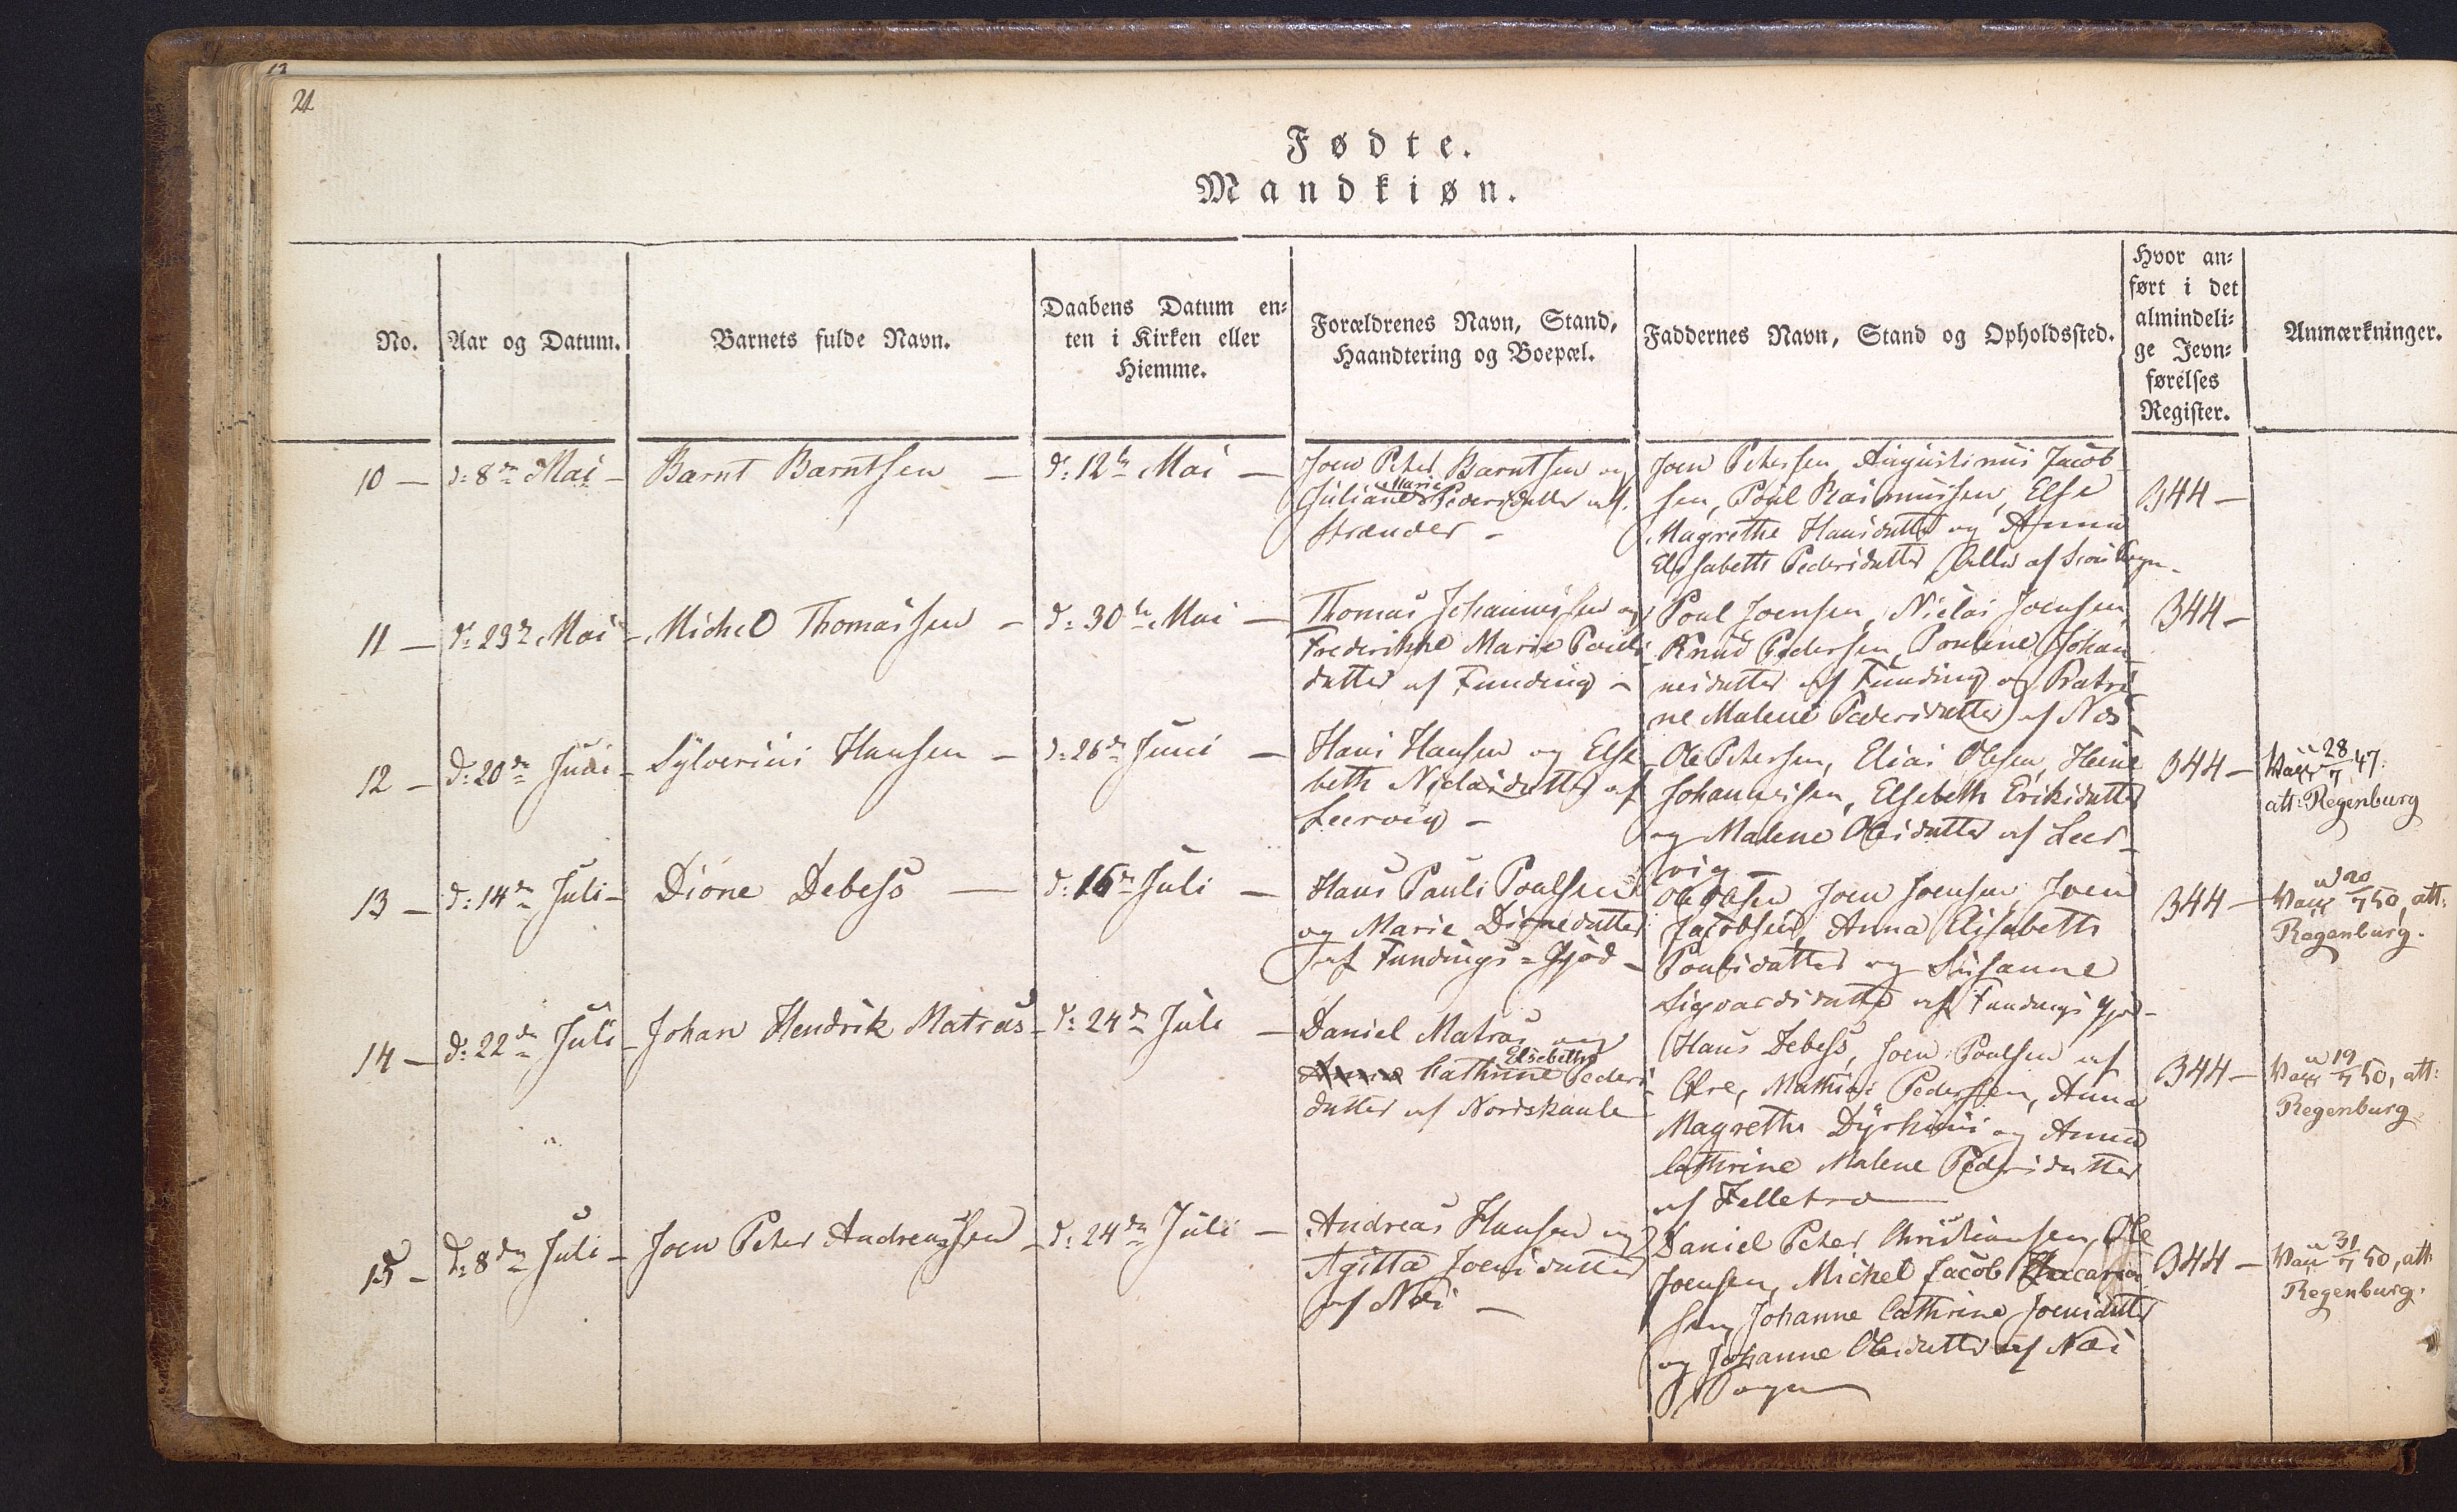 21
Fødte.
Mandkiøn.
No.
Aar og Datum.
Barnets fulde Navn.
Daabens Datum en-
ten i Kirken eller
Hiemme.
Forældrenes Navn, Stand,
Haandtering og Boepæl.
Faddernes Navn, Stand og Opholdssted.
Hvor an-
ført i det
almindeli-
ge Jevn-
førelses
Register.
Anmærkninger.
10 —
d: 8de Mai —
Barnt Barntsen —
d: 12te Mai —
Joen Peter Barntsen og
Marie
Juliane Pedersdatter af
Strænder —
Joen Petersen, Augustinus Jacob-
sen, Poul Rasmussen, Else
Magrethe Hansdatter og Anna
Elisabeth Pedersdatter, alle af
344 —
11 —
d: 29 Mai —
Michel Thomassen —
d: 30te Mai —
Thomas Johannessen og
Frederikke Marie Pouls-
datter af Funding —
Poul Joensen, Niclas Joensen,
Knud Pedersen, Pouline Johan-
nesdatter af Funding og Katri-
ne Malene Pedersdatter af Næs
344 —
12 —
d: 20de Juni —
Sylverius Hansen —
d: 26de Juni —
Hans Hansen og Else-
beth Niclasdatter af
Leervig —
Ole Petersen, Elias Olesen, Heine
Johannesen, Elsebeth Eriksdatter
og Malene Olesdatter af Leer-
vig —
344 —
28/7 47.
att: Regenburg
13 —
d: 14de Juli —
Dione Debess —
d: 16de Juli —
Hans Pauli Poulsen
og Marie Dionedatter
af Fundings-Gjod —
Ole Olesen Joen Joensen, Joen
Jacobsen, Anna Elisabeth
Poulsdatter og Susanne
Sigvardsdatter af Fundings Gjod —
344 —
20/7 50, att:
Regenburg.
14 —
d: 22de Juli —
Johan Hendrik Matras —
d: 24de Juli —
Daniel Matras og
Elsebeth
Anna Cathrine Peders-
datter af Nordskaale
Hans Debess, Joen Poulsen af
Øre, Mathias Pedersen, Anna
Magrethe Dyrhuus og Anna
Cathrine Malene Pedersdatter
af Selletræ
344 —
19/7 50, att:
Regenburg
15 —
d: 8de Juli —
Joen Peter Andreassen —
d: 24de Juli —
Andreas Hansen og
Agitta Joensdatter
af Næs —
Daniel Peter Christiansen, Ole
Joensen, Michel Jacob Zacaria-
sen, Johanne Cathrine Joensdatter
og Johanne Olesdatter af Næs
Sogn
344 —
31/7 50, att:
Regenburg.